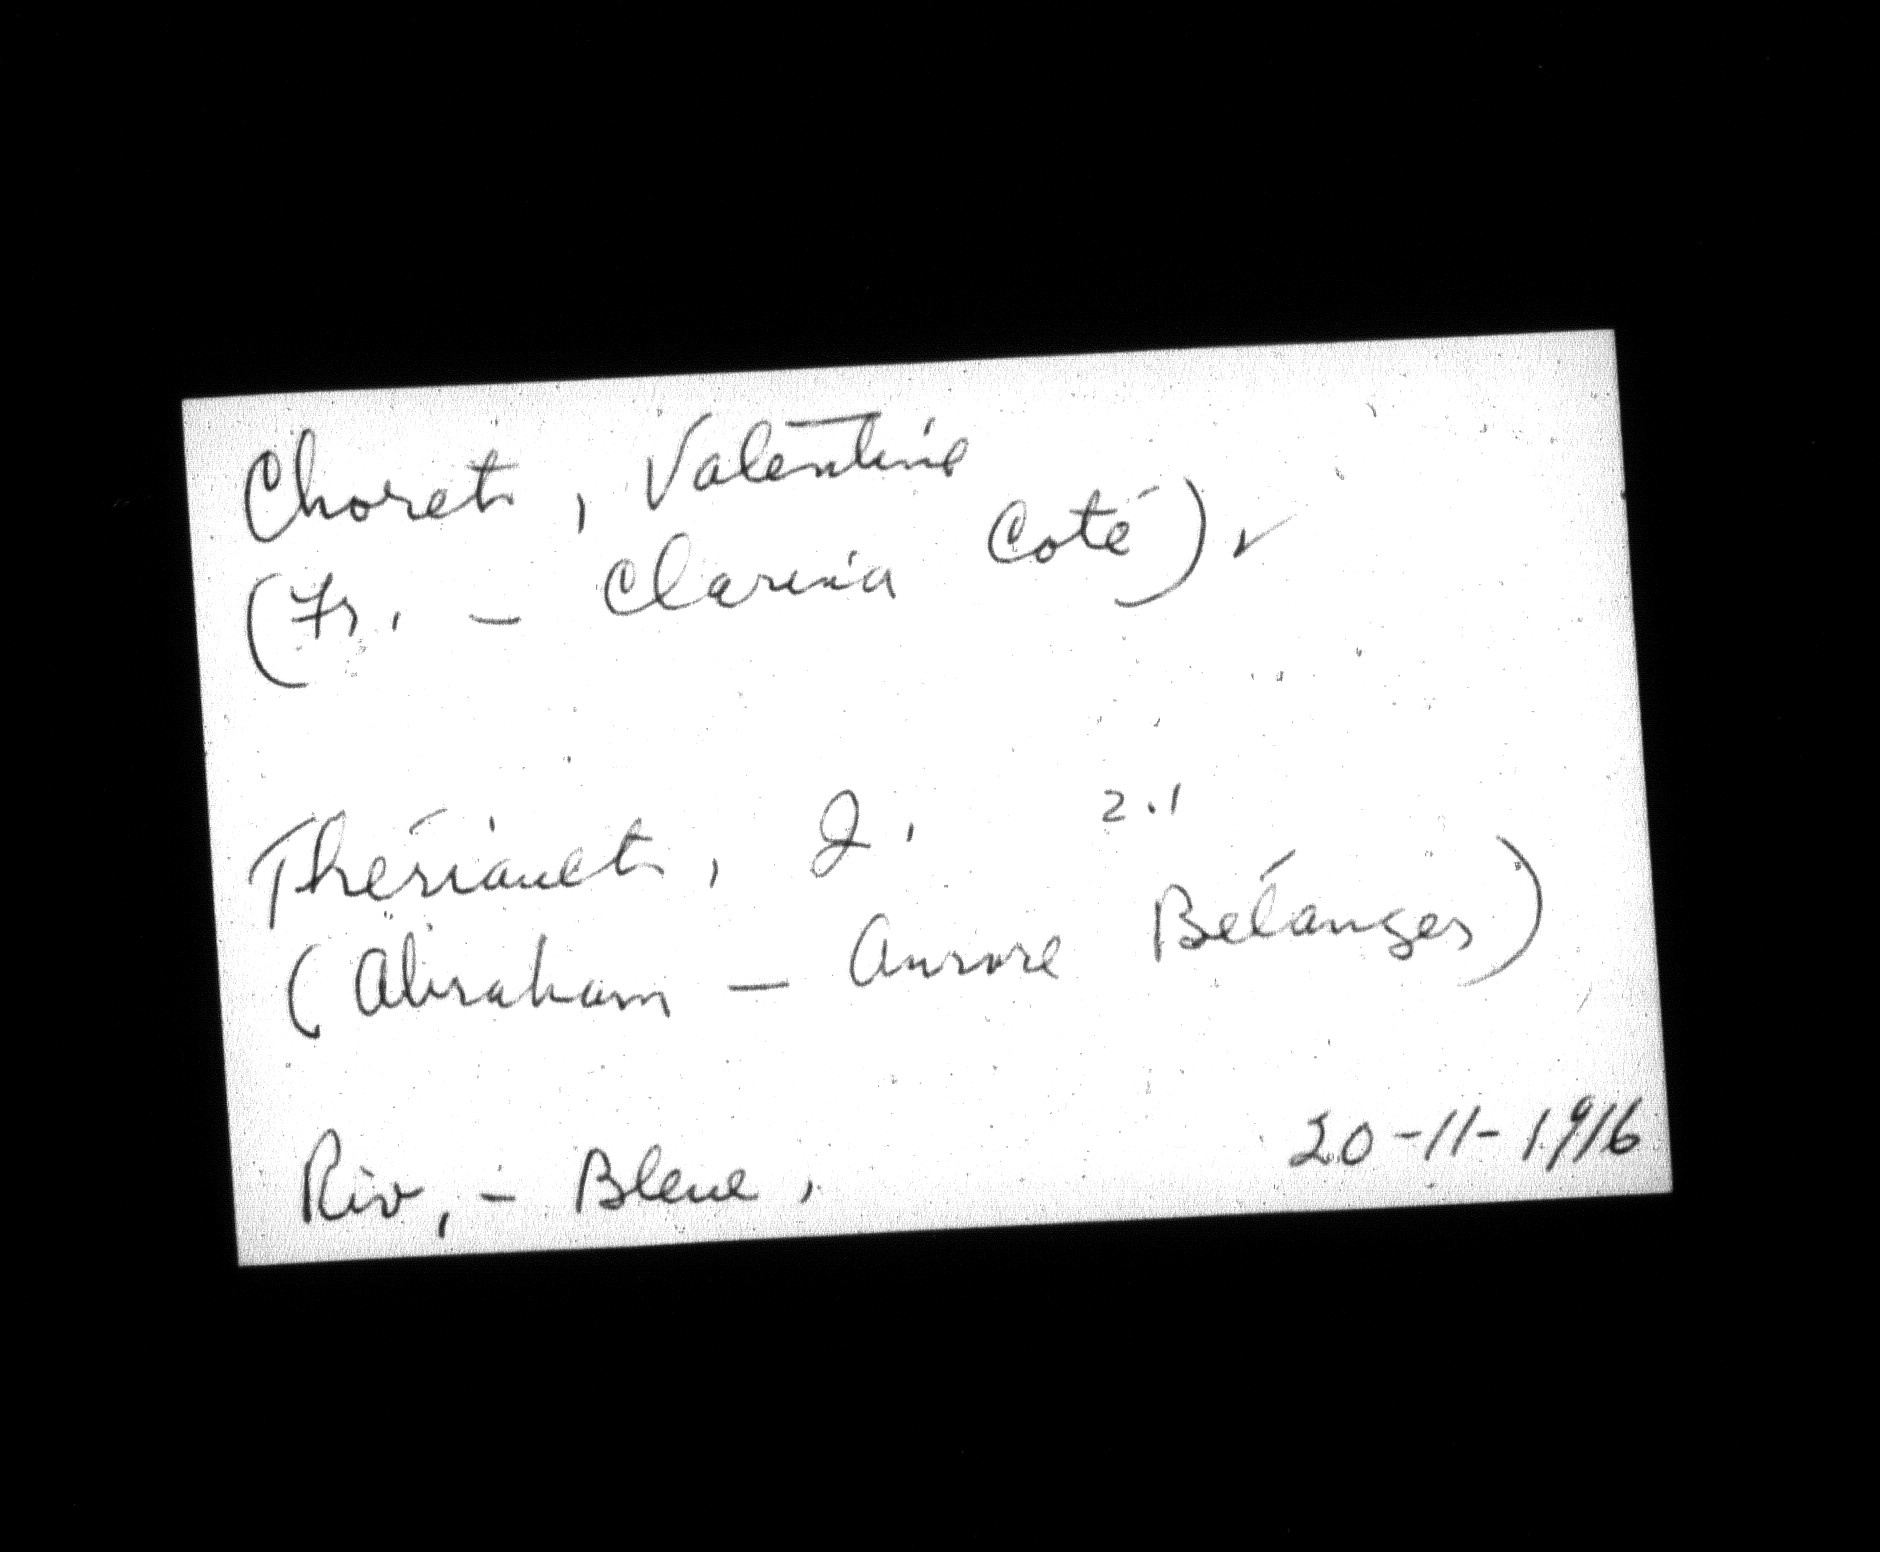 Choret, Valentine
(Fr. - Clarina Coté) ✓
Thériault, J. 2.1
(Abraham - Aurore Bélanger)
Riv. - Bleue, 20-11-1916